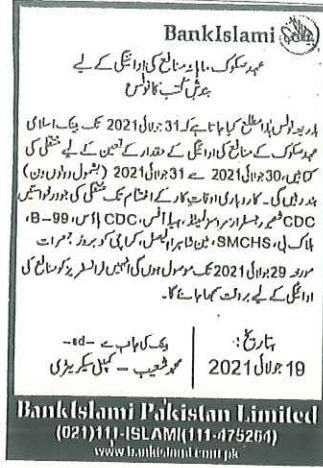 BankIslami
عہد سکوک۔ ماہانہ منافع کی ادائیگی کے لیے
بندش کتب کا نوٹس
بذریعہ نوٹس ہذا مطلع کیا جاتا ہے کہ 31 جولائی 2021 تک بینک اسلامی
عہد سکوک کے منافع کی ادائیگی کے حقدار کے تعین کے لیے منتقلی کی
کتابیں، 30 جولائی 2021 سے 31 جولائی 2021 (بشمول دونوں دن)
بند رہیں گی۔ کاروباری اوقات کار کے اختتام تک منتقلی کی جو درخواستیں
CDC شیئر رجسٹرار سروسز لمیٹڈ، ہیڈ آفس، CDC ہاؤس، 99-B،
بلاک بی، SMCHS، مین شاہراہ فیصل، کراچی کو بروز جمعرات
مورخہ 29 جولائی 2021 تک موصول ہوں گی انہیں ٹرانسفریز کو منافع کی
ادائیگی کے لیے بروقت سمجھا جائے گا۔
بتاریخ:
19 جولائی 2021
بینک کی جانب سے -sd-
محمد شعیب - کمپنی سیکریٹری
BankIslami Pakistan Limited
(021)111-ISLAMI(111-475264)
www.bankislami.com.pk